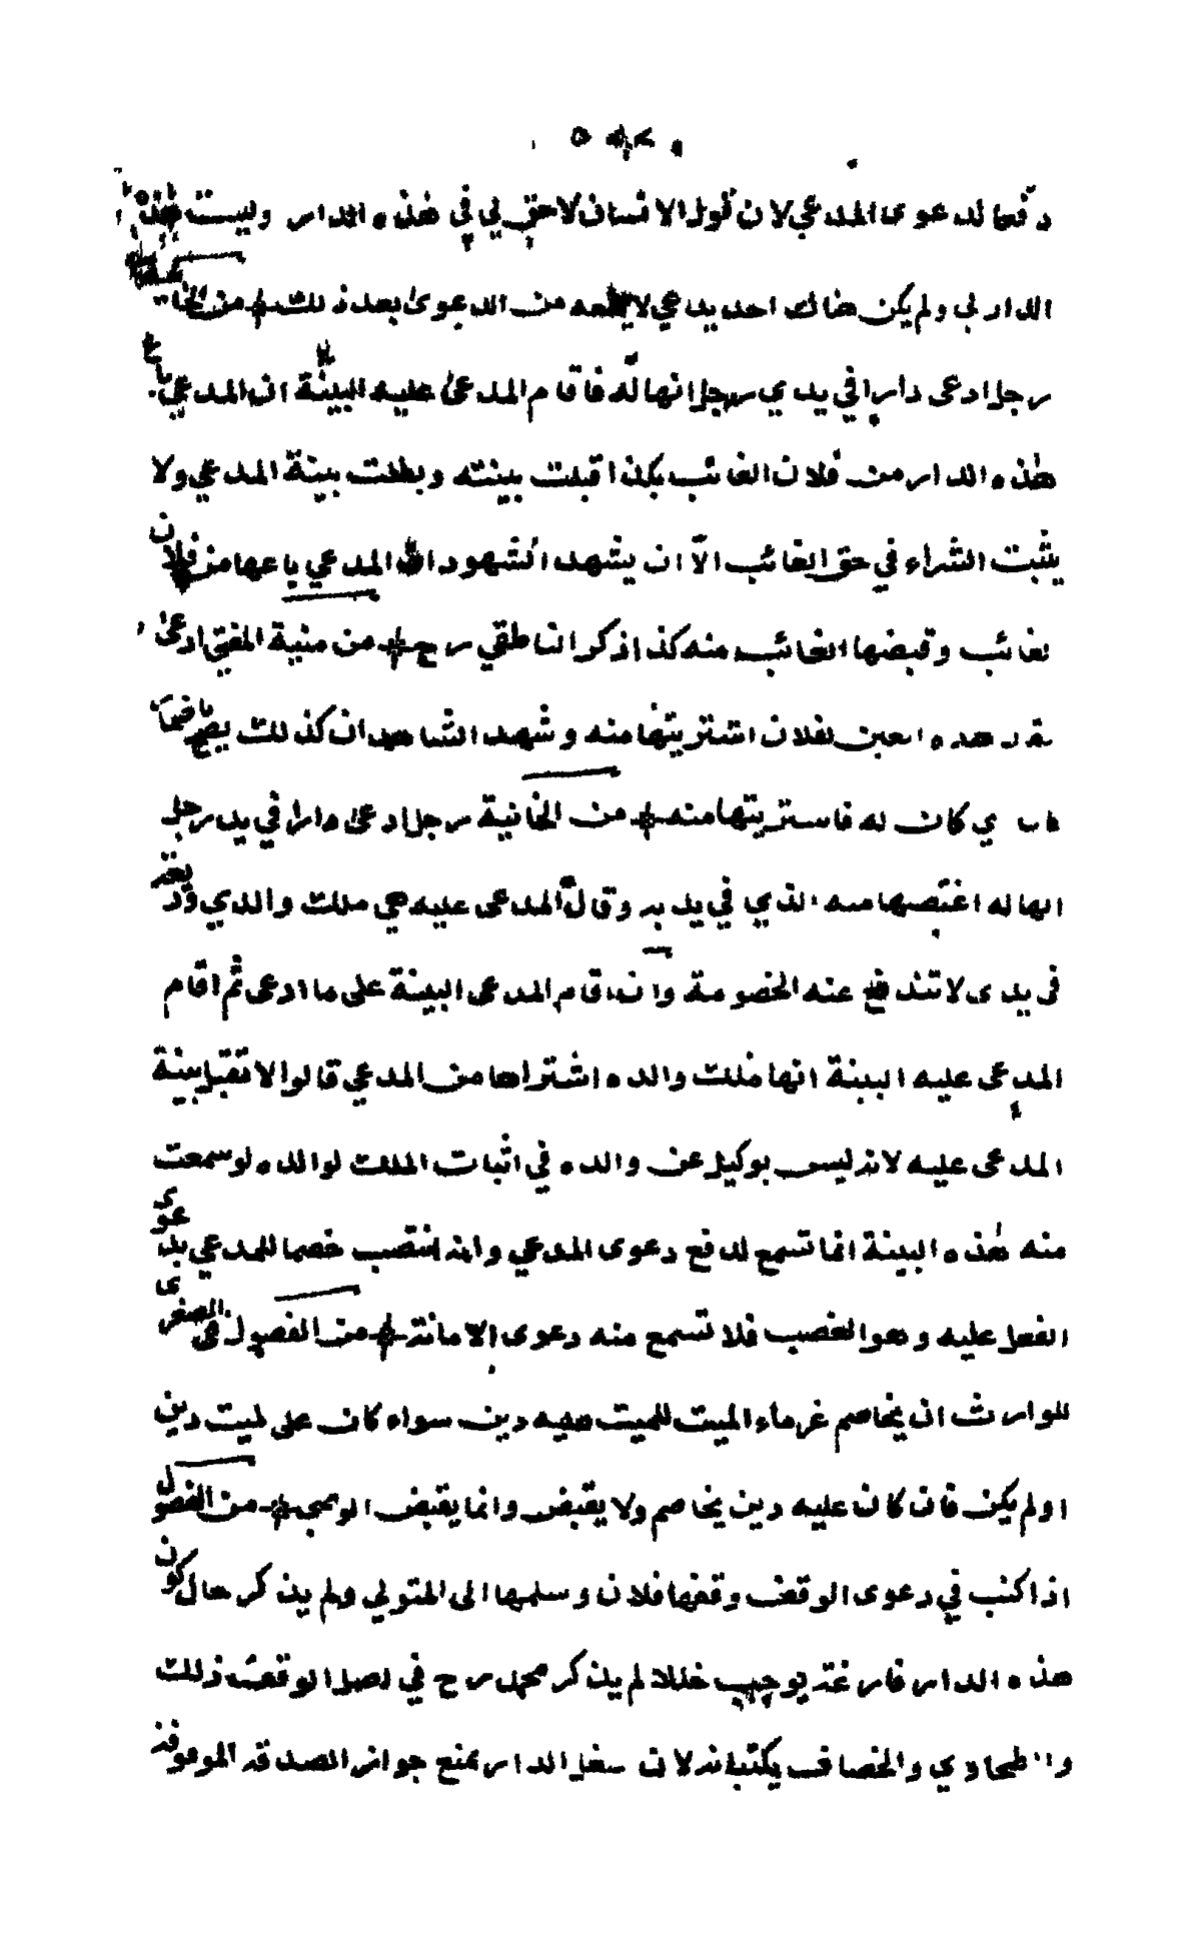 دفعا لدعوى المدعي لان قول الانسان لا حق لي في هذه الدار وليست هذه
الدار لي ولم يكن هناك احد يدعي لا يمنعه من الدعوى بعد ذلك من الخانية
رجل ادعى دارا في يدي رجل انها له فاقام المدعى عليه البينة ان المدعي باع
هذه الدار من فلان الغائب بكذا قبلت بينته وبطلت بينة المدعي ولا
يثبت الشراء في حق الغائب الا ان يشهد الشهود ان المدعي باعها من فلان
لغائب وقبضها الغائب منه كذا ذكر الناطقي رح من منية المفتي ادعى
هذه العين لفلان اشتريتها منه وشهد الشاهدان كذلك يصح
كان له فاشتريتها منه من الخانية رجل ادعى دارا في يد رجل
انها له اغتصبها منه الذي في يديه وقال المدعى عليه هي ملك والدي
في يدي لا تندفع عنه الخصومة وان اقام المدعي البينة على ما ادعى ثم اقام
المدعى عليه البينة انها ملك والده اشتراها من المدعي قالوا لا تقبل بينة
المدعى عليه لانه ليس بوكيل عن والده في اثبات الملك لوالده لو سمعت
منه هذه البينة انما تسمع لدفع دعوى المدعي وانه انتصب خصما للمدعي بدعوى
الفعل عليه وهو الغصب فلا تسمع منه دعوى الامانة من الفصول في الصغرى
للوارث ان يخاصم غرماء الميت للميت عليه دين سواء كان على لميت دين
اولم يكن فان كان عليه دين يخاصم ولا يقبض وانما يقبض الوصي من الفصول
اذا كتب في دعوى الوقف وقفها فلان وسلمها الى المتولي ولم يذكر حال كون
هذه الدار فارغة يوجب خللا لم يذكر محمد رح في اصل الوقف ذلك
والطحاوي والخصاف يكتبانه لان شغل الدار يمنع جواز الصدقة الموقوفة